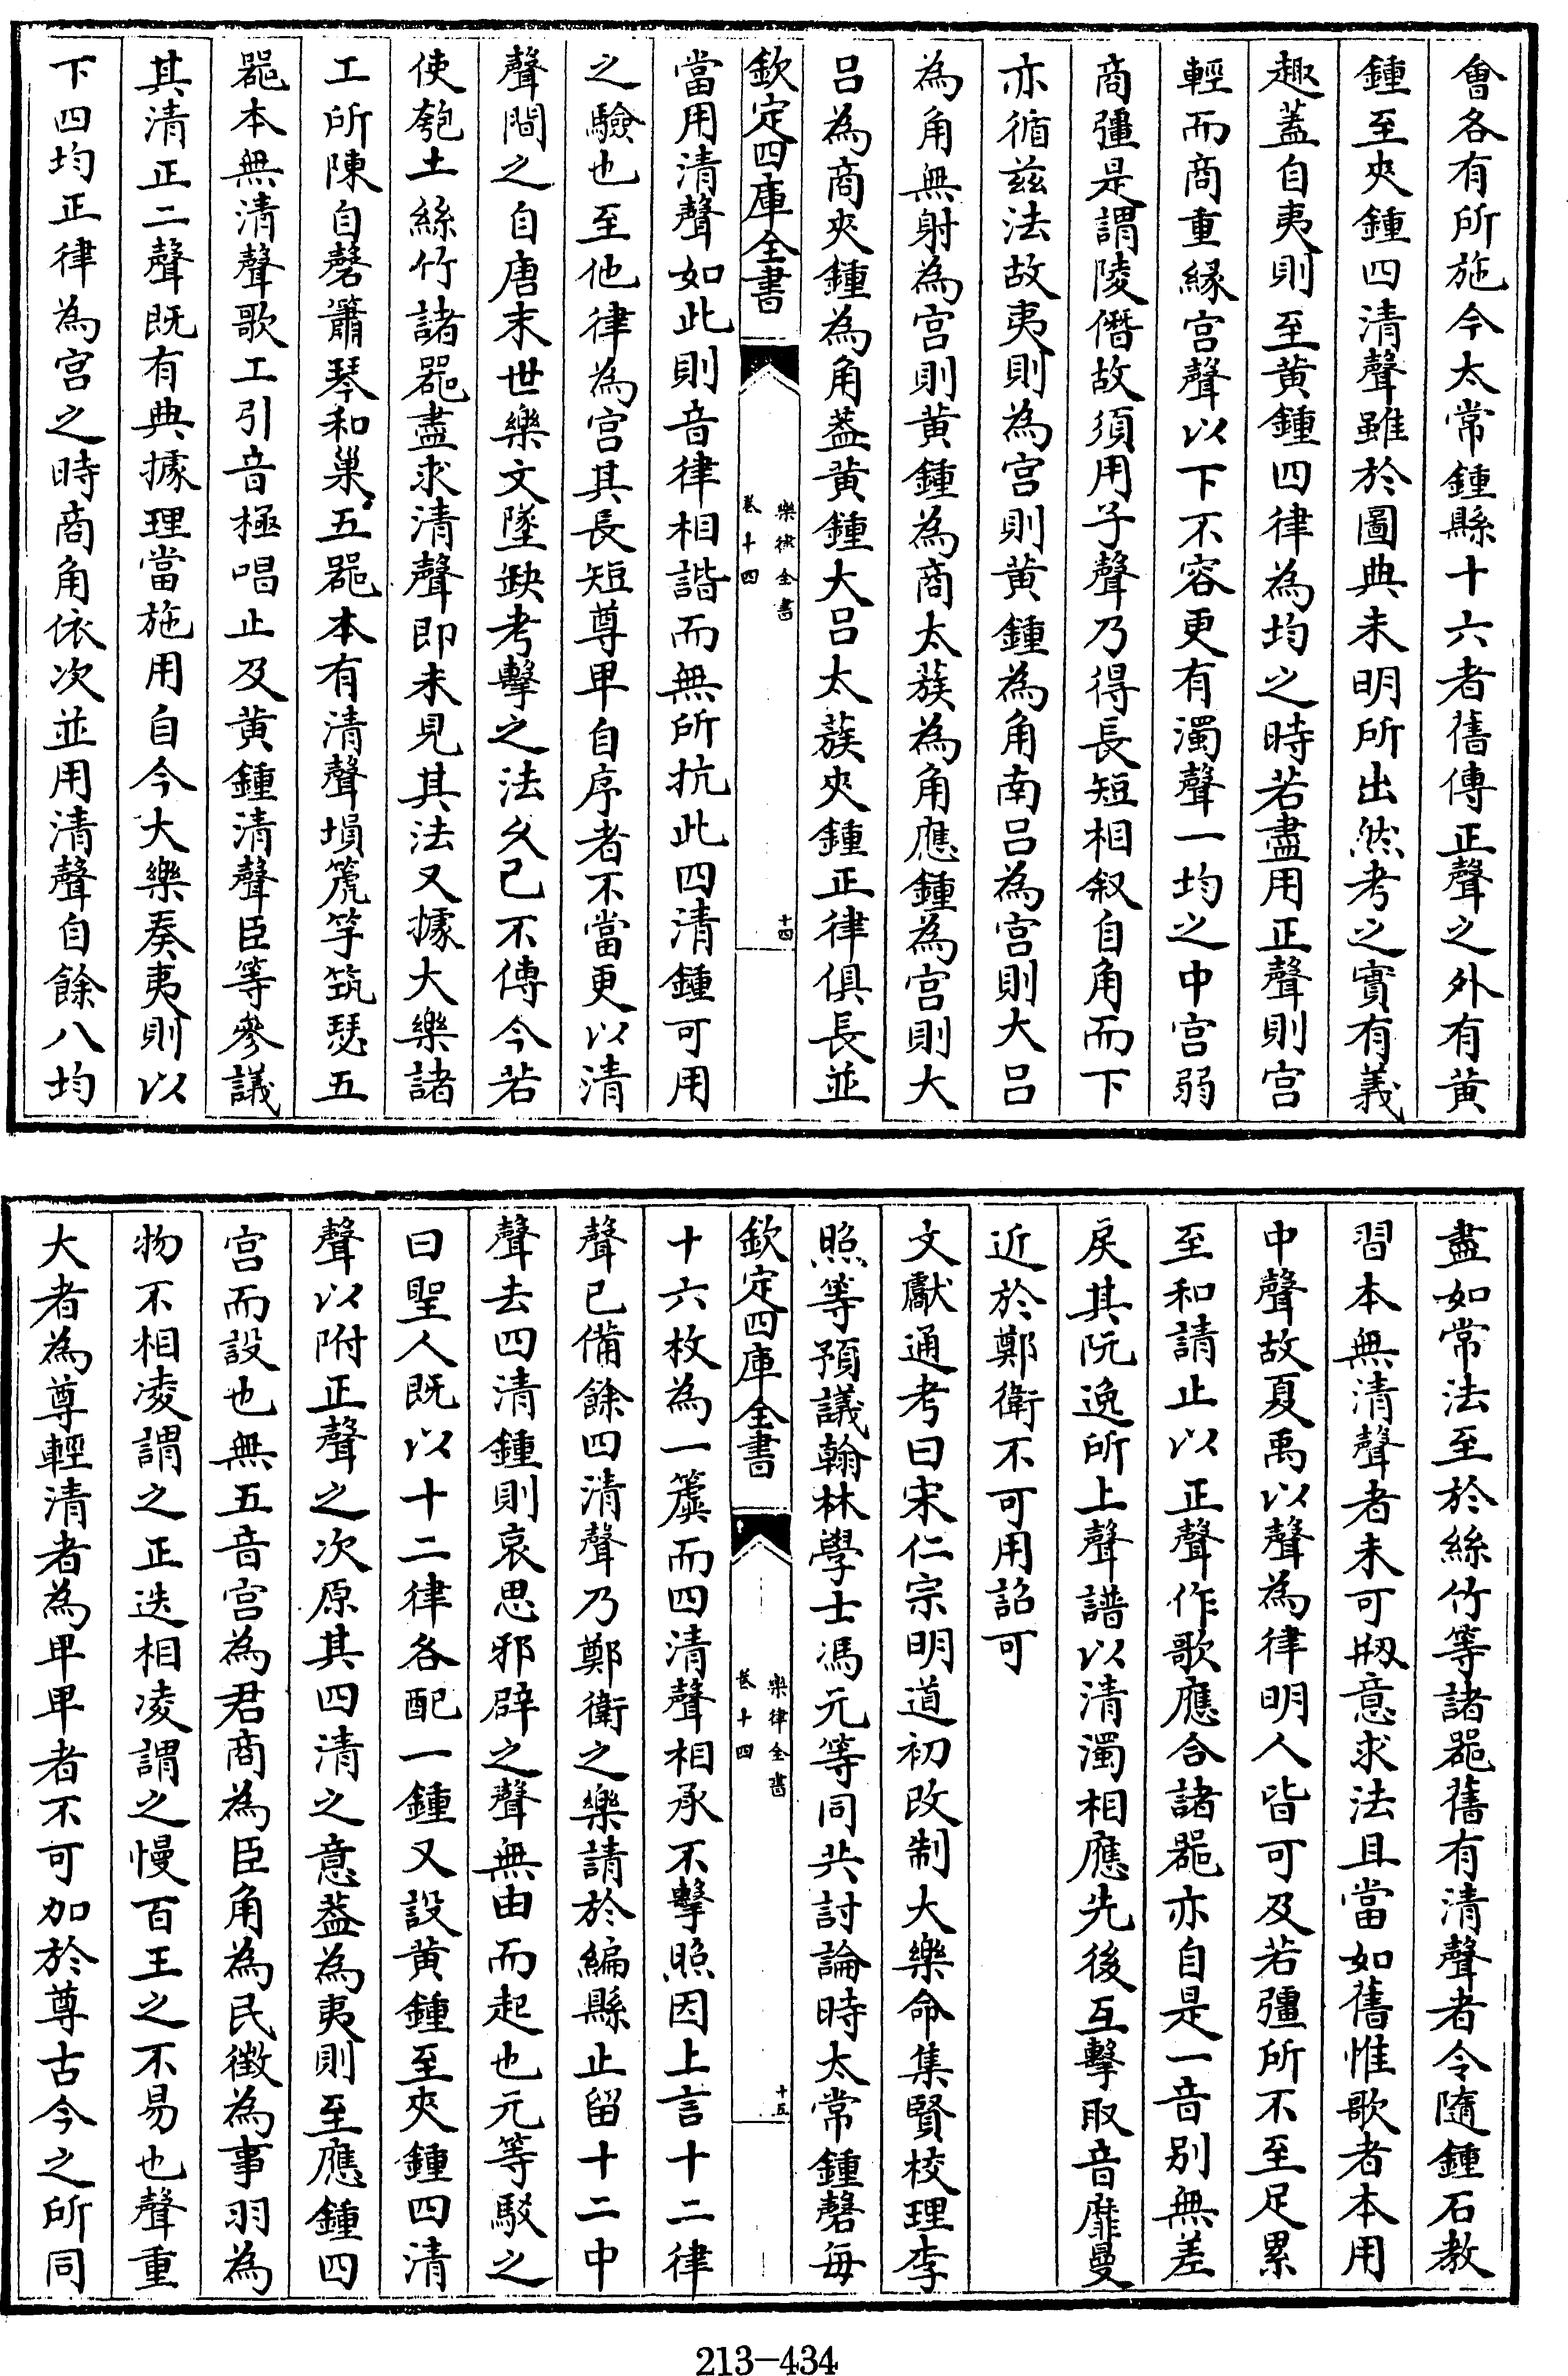 會各有所施今太常鍾縣十六者舊傳正聲之外有黄
鍾至夾鍾四清聲雖於圖典未明所出然考之實有義
趣蓋自夷則至黄鍾四律為均之時若盡用正聲則宫
輕而商重縁宫聲以下不容更有濁聲一均之中宫弱
商彊是謂陵僭故須用子聲乃得長短相叙自角而下
亦循兹法故夷則為宫則黄鍾為角南吕為宫則大吕
為角無射為宫則黄鍾為商太蔟為角應鍾為宫則大
吕為商夾鍾為角葢黄鍾大吕太蔟夾鍾正律俱長並
欽定四庫全書
樂律全書
卷十四
十四
當用清聲如此則音律相諧而無所抗此四清鍾可用
之驗也至他律為宫其長短尊卑自序者不當更以清
聲間之自唐末世樂文墜缺考擊之法久已不傳今若
使匏土絲竹諸器盡求清聲即未見其法又據大樂諸
工所陳自磬簫琴和巢五器本有清聲塤箎竽筑瑟五
器本無清聲歌工引音極唱止及黄鍾清聲臣等參議
其清正二聲既有典據理當施用自今大樂奏夷則以
下四均正律為宫之時商角依次並用清聲自餘八均
盡如常法至於絲竹等諸器舊有清聲者令隨鍾石教
習本無清聲者未可剏意求法且當如舊惟歌者本用
中聲故夏禹以聲為律明人皆可及若彊所不至足累
至和請止以正聲作歌應合諸器亦自是一音别無差
戾其阮逸所上聲譜以清濁相應先後互擊取音靡曼
近於鄭衛不可用詔可
文獻通考曰宋仁宗明道初改制大樂命集賢校理李
照等預議翰林學士馮元等同共討論時太常鍾磬每
欽定四庫全書
樂律全書
卷十四
十五
十六枚為一簴而四清聲相承不擊照因上言十二律
聲已備餘四清聲乃鄭衛之樂請於編縣止留十二中
聲去四清鍾則哀思邪辟之聲無由而起也元等駁之
曰聖人既以十二律各配一鍾又設黄鍾至夾鍾四清
聲以附正聲之次原其四清之意葢為夷則至應鍾四
宫而設也無五音宫為君商為臣角為民徵為事羽為
物不相凌謂之正迭相凌謂之慢百王之不易也聲重
大者為尊輕清者為卑卑者不可加於尊古今之所同
213-434